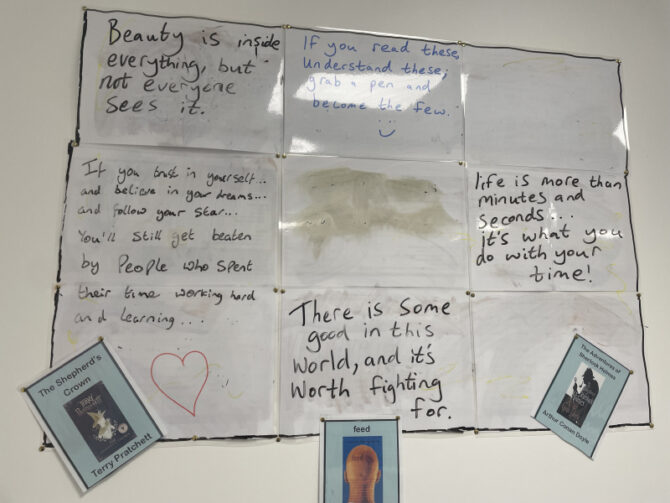 Beauty is inside
everything, but
not everyone
sees it.
If you read these,
Understand these;
grab a pen and
become the few.
If you trust in yourself...
and believe in your dreams...
and follow your star...
You'll still get beaten
by People who spent
their time working hard
and learning....
life is more than
minutes and
seconds...
it's what you
do with your
time!
There is some
good in this
world, and it's
worth fighting
for.
The Shepherd's
Crown
Terry Pratchett
feed
The Adventures of
Sherlock Holmes
Arthur Conan Doyle